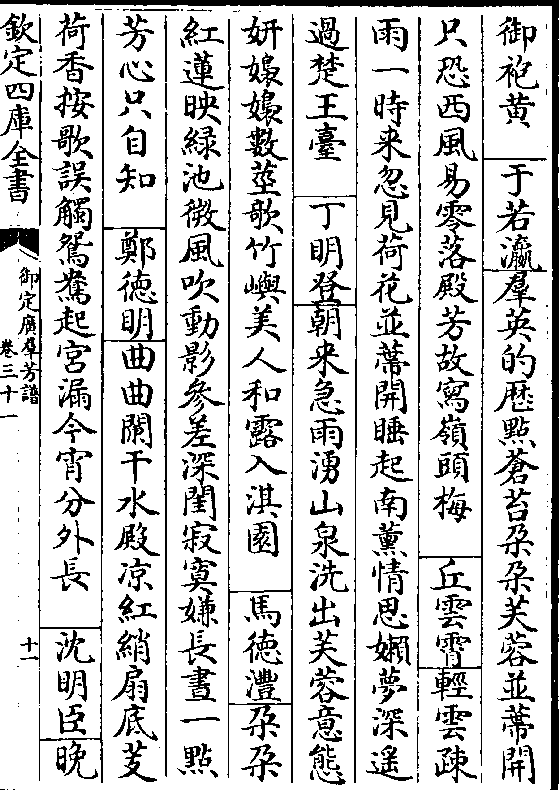 御袍黄　于若瀛羣英的歷點蒼苔朶朶芙蓉並蒂開
只恐西風易零落殿芳故寫嶺頭梅　丘雲霄輕雲疎
雨一時来忽見荷花並蒂開睡起南薰情思嬾夢深遥
過楚王臺　丁明登朝来急雨湧山泉洗出芙蓉意態
妍嬝嬝數莖歌竹嶼美人和露入淇園　馬德灃朶朶
紅蓮映緑池微風吹動影參差深閨寂寞嫌長晝一點
芳心只自知　鄭德明曲曲闌干水殿凉紅綃扇底芰
荷香按歌誤觸鴛鴦起宮漏今宵分外長　沈明臣晚
欽定四庫全書
御定廣羣芳譜
卷三十一
十一